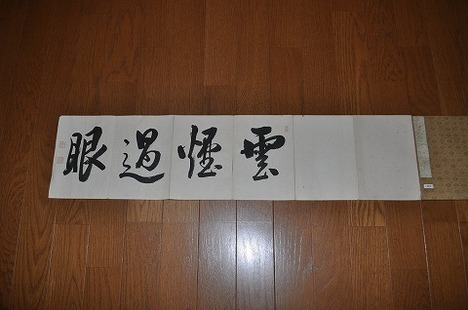 雲煙過眼